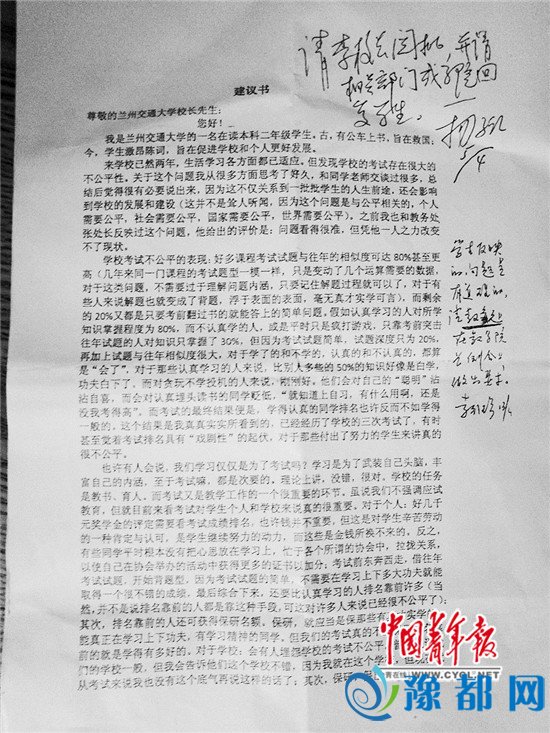 请李校长阅批 并请
相关部门或
建议书
尊敬的兰州交通大学校长先生:
您好!
我是兰州交通大学的一名在读本科二年级学生。古,有公车上书,旨在救国;
今,学生激昂陈词,旨在促进学校和个人更好发展。
来学校已然两年,生活学习各方面都已适应。但发现学校的考试存在很大的
不公平性。关于这个问题我从很多方面思考了好久,和同学老师交谈过很多,总
结后觉得很有必要说出来,因为这不仅关系到一批批学生的人生前途,还会影响
到学校的发展和建设(这并不是耸人听闻,因为这个问题是与公平相关的,个人
需要公平,社会需要公平,国家需要公平,世界需要公平)。之前我也和教务处
张处长反映过这个问题,他给出的评价是:问题看得很准,但凭他一人之力改变
不了现状。
学校考试不公平的表现:好多课程考试试题与往年的相似度可达 80%甚至更
高(几年来同一门课程的考试题型一模一样,只是变动了几个运算需要的数据,
对于这类问题,不需要过于理解问题内涵,只要记住解题过程就可以了,对于有
些人来说解题也就变成了背题,浮于表面的表面,毫无真才实学可言),而剩余
的 20%又都是只要考前翻过书的就能答上的简单问题,假如认真学习的人对所学
知识掌握程度为 80%,而不认真学的人,或是平时只是疯打游戏,只靠考前突击
往年试题的人对知识只掌握了 30%,但因为考试题简单,试题深度只为 20%,
再加上试题与往年相似度很大。对于学了的和不学的,认真的和不认真的,都算
是“会了”,对于那些认真学习的人来说,比别人多些的 50%的知识好像是白学,
功夫白下了,而对贪玩不学投机的人来说,刚刚好。他们会对自己的“聪明”沾
沾自喜,而会对认真埋头读书的同学贬低,“就知道上自习,有什么用啊,还是
没我考得高”。而考试的最终结果便是,学得认真的同学排名也许反而不如学得
一般的。这个结果是我真真实实所看到的,已经经历了学校的三次考试了,有时
甚至觉着考试排名具有“戏剧性”的起伏,对于那些付出了努力的学生来讲真的
很不公平。
也许有人会说,我们学习仅仅是为了考试吗?学习是为了武装自己头脑,丰
富自己的内涵,至于考试嘛,都是次要的,理论上讲,没错,很对,学校的任务
是教书、育人。而考试又是教学工作的一个很重要的环节,虽说我们不强调应试
教育,但就目前来看考试对学生个人和学校来说真的很重要。对于个人:好几千
元奖学金的评定需要看考试成绩排名,也许钱并不重要,但这是对学生辛苦劳动
的一种肯定与认可,是学生继续努力的动力,而这些是金钱所换不来的,反之,
有些同学平时根本没有把心思放在学习上,忙于各个所谓的协会中,拉拢关系,
以使自己在协会举办的活动中获得更多的证书以加分,考试前东奔西走,借往年
考试试题,开始背题型,因为考试试题的简单,不需要在学习上下多大功夫就能
取得一个很不错的成绩,最后综合下来,还要比认真学习的人排名靠前许多(当
然,并不是说排名靠前的人都是靠这种手段,可这对许多人来说已经很不公平了);
其次,排名靠前的人还可获得保研名额,保研,就应当是保那些有真才实学
能真正在学习上下功夫,有学习精神的同学,但我们的考试真的不
前的就是学得有多好的。对于学校:会有人埋怨学校的考试不公平
们的学校一般,但我会告诉他们这个学校不错,因为我就在这个学校,但
从考试来说我也没有这个底气再说这样的话了;其次,保研
5/4
学生反映
的问题是
有道理的,
请教务处
中国青年报
中青在线 WWW.CYOL.NET
豫都网